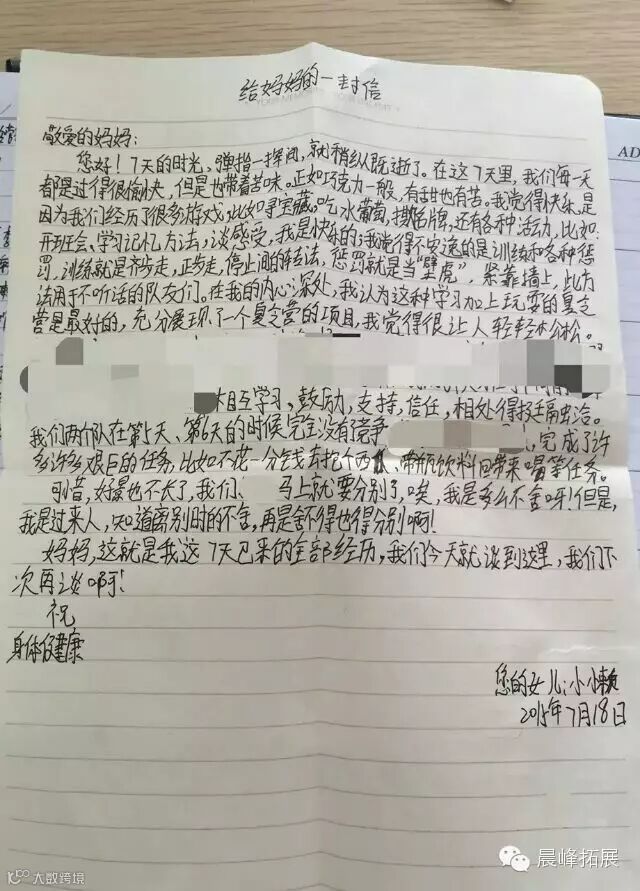 给妈妈的一封信
敬爱的妈妈：
您好！7天的时光，弹指一挥间，就稍纵既逝了。在这7天里，我们每一天
都是过得很愉快，但是也带着苦味。正如巧克力一般，有甜也有苦。我觉得快乐，是
因为我们经历了很多游戏，比如寻宝藏。吃水葡萄，撕名牌，还有各种活动，比如
开班会、学习记忆方法，谈感受，我是快乐的；我觉得不安逸的是训练和各种惩
罚，训练就是齐步走，正步走，停止间的转法，惩罚就是当"壁虎"，紧靠墙上，此方
法用于不听话的队友们。在我的内心深处，我认为这种学习加上玩耍的夏令
营是最好的，充分展现了一个夏令营的项目，我觉得很让人轻轻松松。
相互学习，鼓励，支持，信任，相处得挺融洽。
我们两个队在第5天、第6天的时候完全没有竞争 ，完成了许
多许多艰巨的任务，比如不花一分钱去抢个西瓜、带瓶饮料回带来喝等任务。
可惜，好景也不长了，我们、 马上就要分别了，唉，我是多么不舍呀！但是，
我是过来人，知道离别时的不舍，再是舍不得也得分别啊！
妈妈，这就是我这7天已来的全部经历，我们今天就谈到这里，我们下
次再谈啊！
祝
身体健康
您的女儿：小小赖
2015年7月18日
AD
晨峰拓展
大数跨境